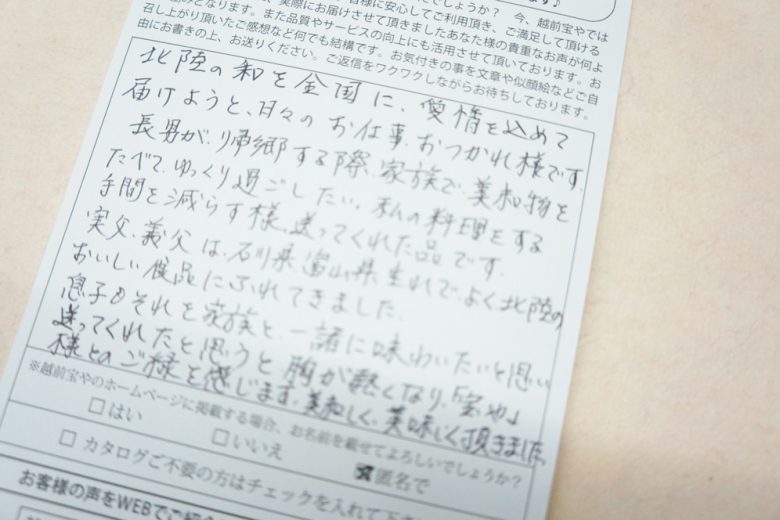 でしょうか？ 今、越前宝やでは
実際にお届けさせて頂きましたあなた様の貴重なお声が何よ
となります。また品質やサービスの向上にも活用させて頂いております。お
召し上がり頂いたご感想など何でも結構です。お気付きの事を文章や似顔絵などご自
由にお書きの上、お送りください。ご返信をワクワクしながらお待ちしております。
北陸の和を全国に、愛情を込めて
届けようと、日々の お仕事、おつかれ様です。
長男が、帰郷する際、家族で、美和物を
たべて、ゆっくり過ごしたい、私の料理をする
手間を減らす様、送ってくれた品です。
実父、義父は、石川県富山県生れで、よく北陸の
おいしい食品にふれてきました。
息子もそれを家族と、一諸に味わいたいと思い
送ってくれたと思うと 胸が熱くなり、「宝や」
様とのご縁を感じます。美和しく、美味しく頂きました。
※越前宝やのホームページに掲載する場合、お名前を載せてよろしいでしょうか？
□はい □いいえ 匿名で
□ カタログご不要の方はチェックを入れて下さ
お客様の声をWEBでご紹介